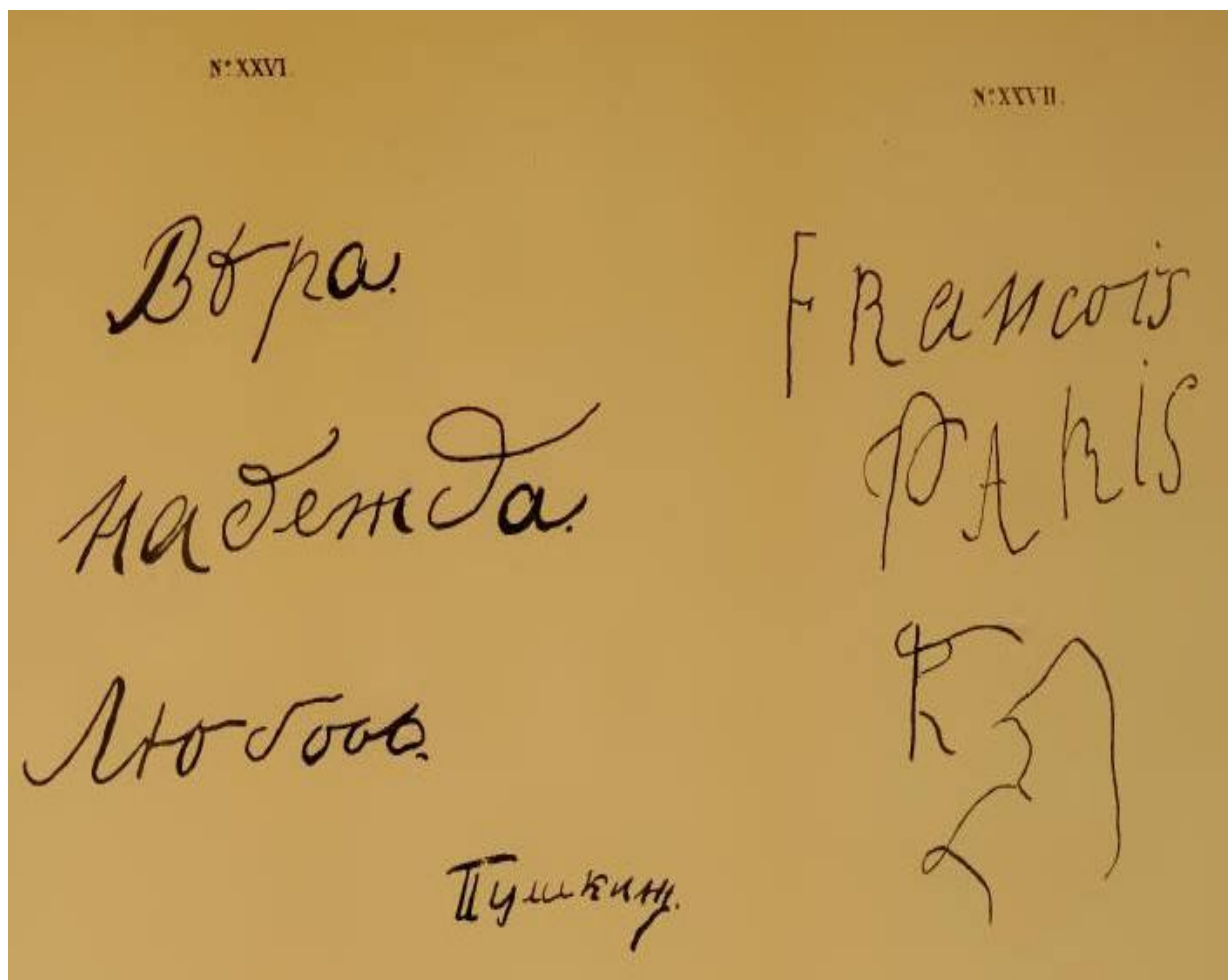 N° XXVI.
Вѣра.
надежда.
Любовь.
Пушкинъ.
N° XXVII.
FRancois
PARIS